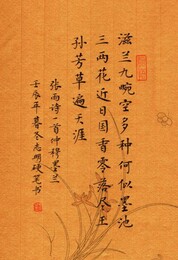 滋兰九畹空多种何似墨池
三两花近日国香零落尽王
孙芳草遍天涯
张雨诗一首仲穆墨兰
壬辰年暮冬志明硬笔书